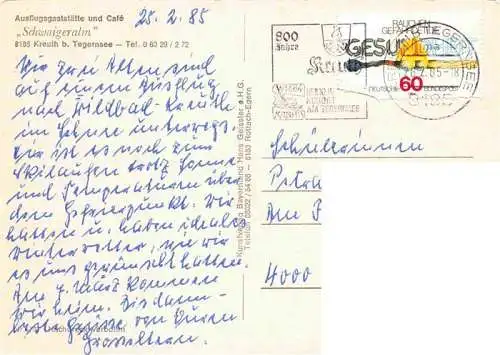 Ausflugsgaststätte und Café
"Schwaigeralm"
8185 Kreuth b. Tegernsee – Tel. 0 80 29 / 2 72
25. 2. 85
Wir zwei Alten sind
auf einem Ausflug
nach Wildbad-Kreuth
im Schnee unterwegs.
Hier ist es noch zum
Skilaufen trotz Sonne
und Temperaturen über
dem Gefrierpunkt. Wir
hatten u. haben ideales
Winterwetter, wie wir
es uns gewünscht hatten.
Am 4. März kommen
wir heim. Bis dann
liebe Grüße von Euren
Großeltern.
Kunstverlag Bayernland Hans Geissler e.H.G.
Telefon 08022 / 24 68 – 8183 Rottach-Egern
800
Jahre
RAUCHEN
GEFÄHRDET DIE
GESUNDHEIT
60
DEUTSCHE BUNDESPOST
TEGERNSEE
85-18
Schülerinnen
Petra
Am F
4000